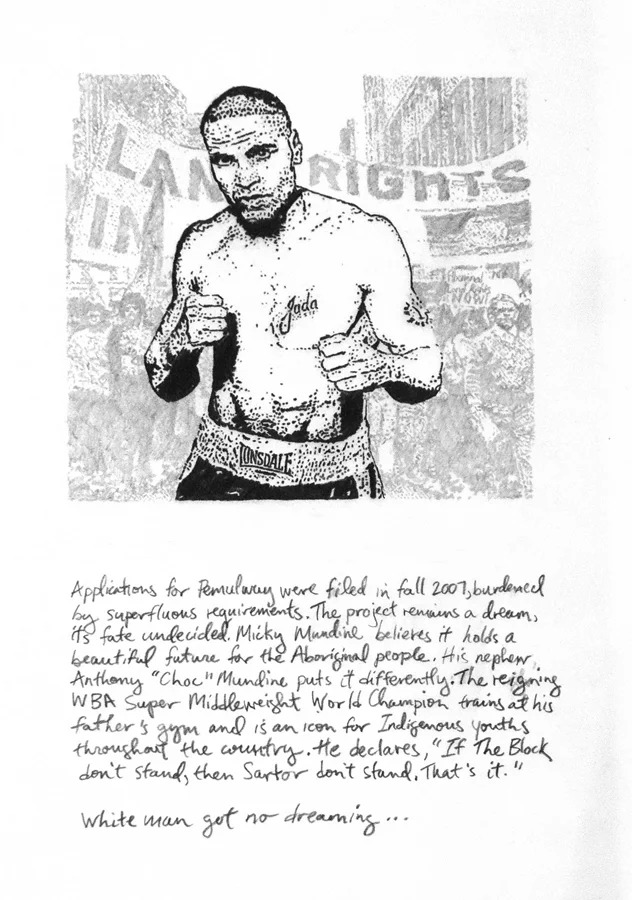 LAN RIGHTS
IN
NOW!
Jada
LONSDALE
Applications for Pemulwuy were filed in fall 2007, burdened
by superfluous requirements. The project remains a dream,
its fate undecided. Micky Mundine believes it holds a
beautiful future for the Aboriginal people. His nephew
Anthony "Choc" Mundine puts it differently. The reigning
WBA Super Middleweight World Champion trains at his
father's gym and is an icon for Indigenous youths
throughout the country. He declares, "If The Block
don't stand, then Sartor don't stand. That's it."
White man got no dreaming...